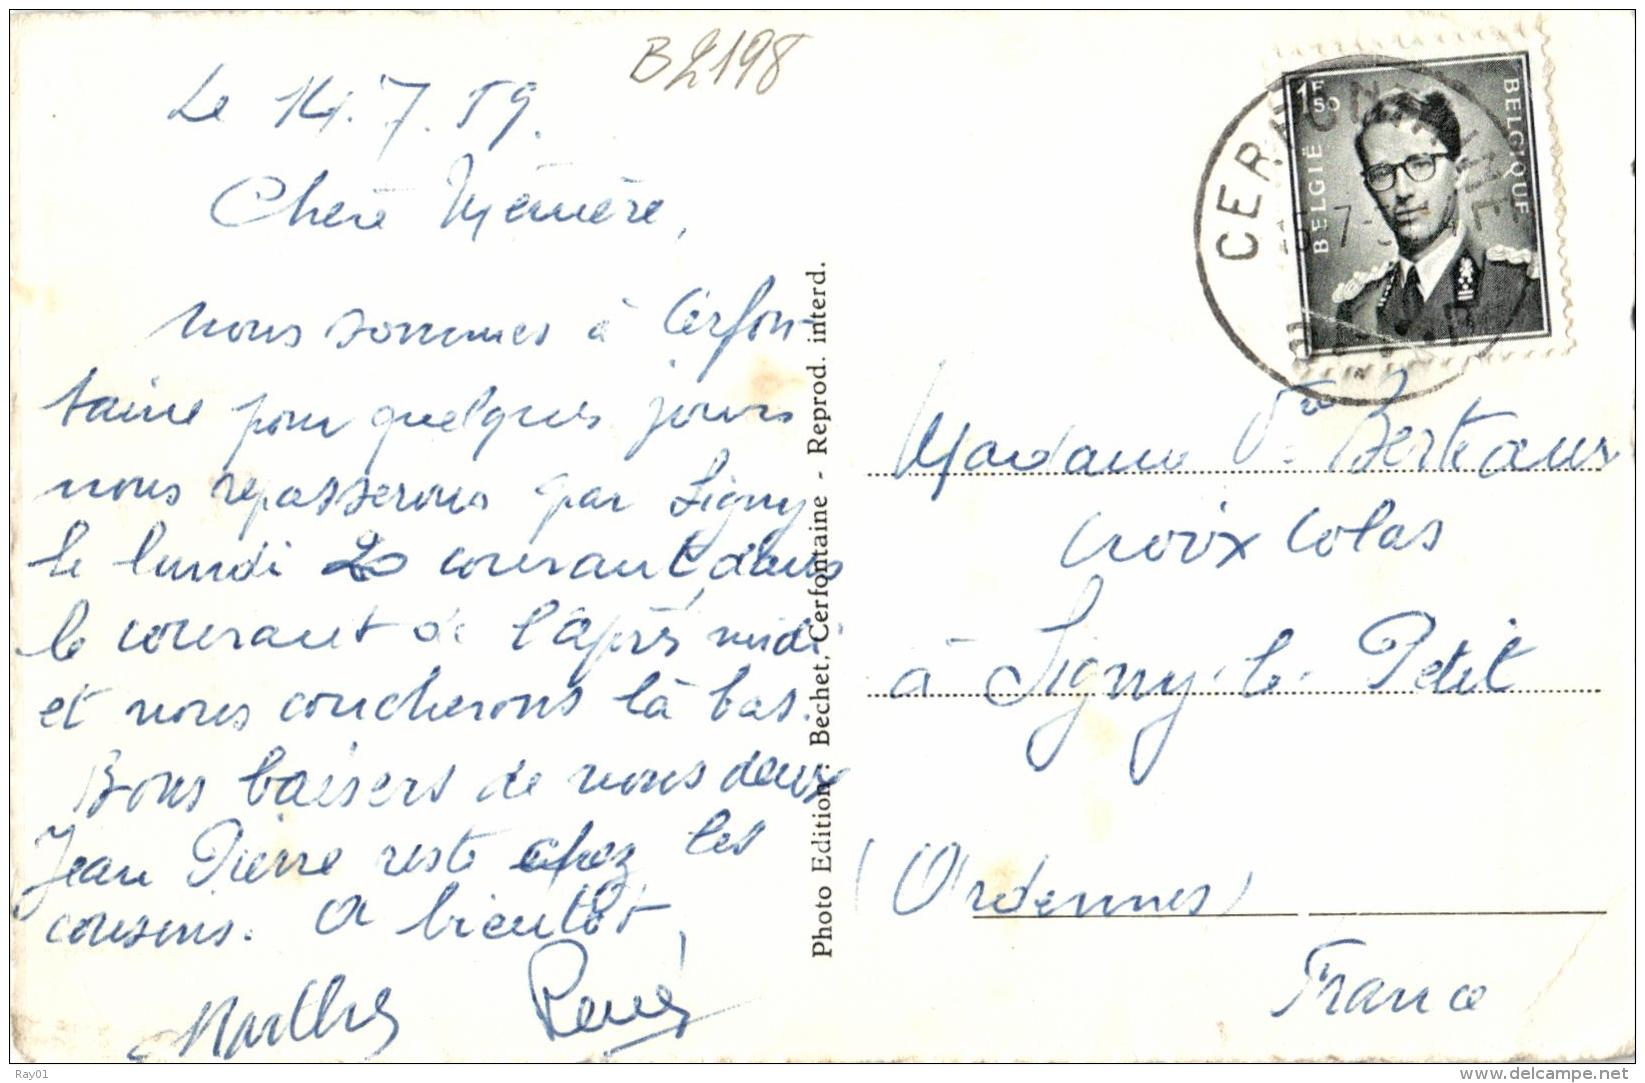 B2198
Le 14.7.59.
Chère Mémère,
nous sommes à Cerfon-
taine pour quelques jours
nous repasserons par Signy
le lundi 20 courant, dans
le courant de l'après midi
et nous coucherons là bas.
Bons baisers de nous deux
Jean Pierre reste chez les
cousins. A bientôt
Marthe René
Photo Edition: Bechet, Cerfontaine - Reprod. interd.
1F50
BELGIË
BELGIQUE
Madame Vve Berteaux
Croix Colas
à Signy-le-Petit
(Ardennes)
France
Ray01
www.delcampe.net